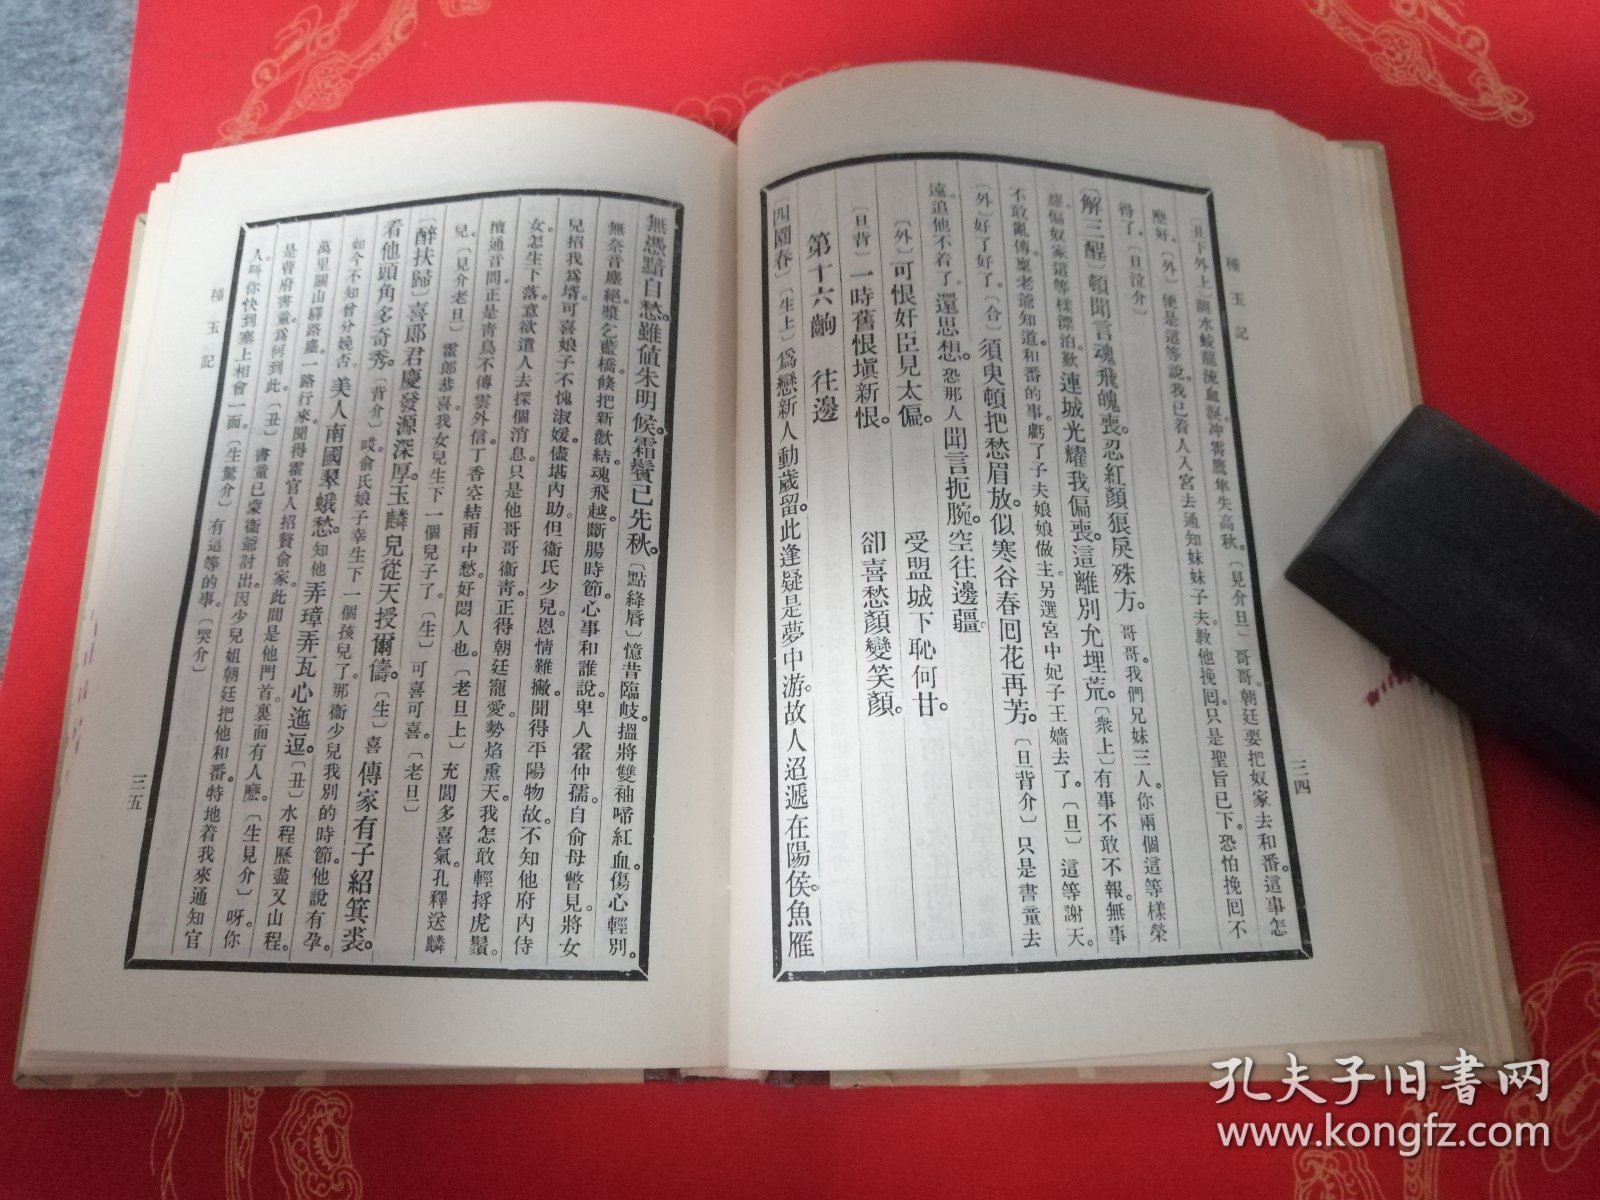 種玉記
三四
〔丑下外上〕隴水蛟龍流血淚。沖霄鷹隼失高秋。〔見介旦〕哥哥。朝廷要把奴家去和番。這事怎
麼好。〔外〕便是這等說。我已着人入宮去通知妹妹子夫。教他挽囘。只是聖旨已下。恐怕挽囘不
得了。〔旦泣介〕
〔解三醒〕頓聞言魂飛魄喪。忍紅顏狼戾殊方。哥哥。我們兄妹三人。你兩個這等樣榮
耀。偏奴家這等樣漂泊歎。連城光耀我偏喪。這離別允埋荒。〔衆上〕有事不敢不報。無事
不敢亂傳。稟老爺知道。和番的事。虧了子夫娘娘做主。另選宮中妃子王嬙去了。〔旦〕這等謝天。
〔外〕好了好了。〔合〕須臾頓把愁眉放。似寒谷春囘花再芳。〔旦背介〕只是書童去
遠。追他不着了。還思想。恐那人聞言扼腕。空往邊疆。
〔外〕可恨奸臣見太偏。 受盟城下恥何甘。
〔旦背〕一時舊恨塡新恨。 卻喜愁顏變笑顏。
第十六齣 往邊
〔四園春〕〔生上〕爲戀新人動歲留。此逢疑是夢中游。故人迢遞在陽侯。魚雁
無憑黯自愁。雖値朱明候。霜鬢已先秋。〔點絳唇〕憶昔臨岐。搵將雙袖啼紅血。傷心輕別。
無奈音塵絕。漿乞藍橋。倏把新歡結。魂飛越。斷腸時節。心事和誰說。卑人霍仲孺。自俞母瞥見。將女
兒招我爲壻。可喜娘子不愧淑媛。儘堪內助。但衞氏少兒。恩情難撇。聞得平陽物故。不知他府內侍
女怎生下落。意欲遣人去探個消息。只是他哥哥衞靑。正得朝廷寵愛。勢焰熏天。我怎敢輕捋虎鬚。
擅通音問。正是靑鳥不傳雲外信。丁香空結雨中愁。好悶人也。〔老旦上〕充閭多喜氣。孔釋送麟
兒。〔見介老旦〕霍郎恭喜。我女兒生下一個兒子了。〔生〕可喜可喜。〔老旦〕
〔醉扶歸〕喜郎君慶發源深厚。玉麟兒從天授爾儔。〔生〕喜傳家有子紹箕裘。
看他頭角多奇秀。〔背介〕哎。俞氏娘子。幸生下一個孩兒了。那衞少兒我別的時節。他說有孕。
如今不知曾分娩否。美人南國翠蛾愁。知他弄璋弄瓦心迤逗。〔丑〕水程歷盡又山程。
萬里關山驛路塵。一路行來。聞得霍官人招贅俞家。此間是他門首。裏面有人麼。〔生見介〕呀。你
是曹府書童。爲何到此。〔丑〕書童已蒙衞爺討出。因少兒姐朝廷把他和番。特地着我來通知官
人。叫你快到塞上相會一面。〔生驚介〕有這等的事。〔哭介〕
種玉記
三五
孔夫子旧书网
www.kongfz.com